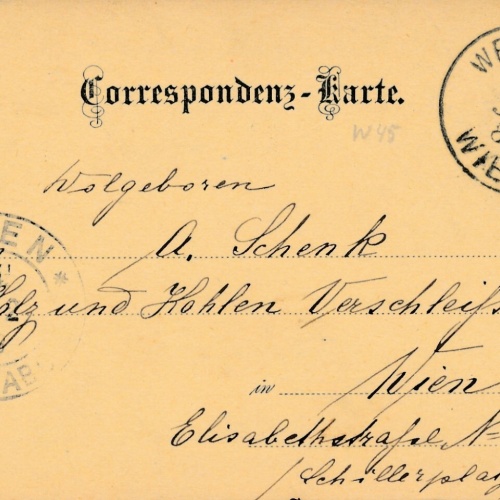 Correspondenz-Karte.
W45
WE
WIE
Wolgeboren
EN
A. Schenk
Holz und Kohlen Verschleiss
AB
in Wien
Elisabethstraße No
Schillerplatz